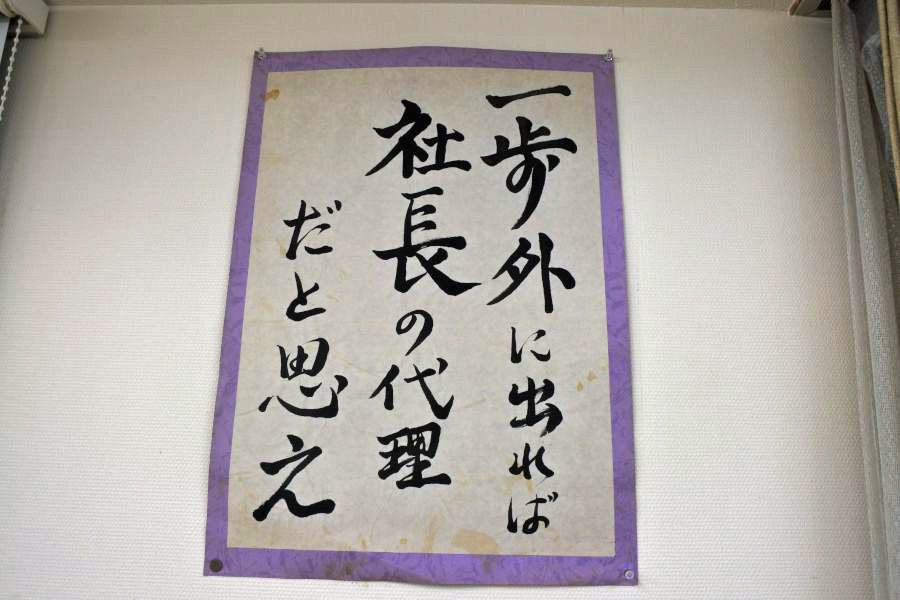 一歩外に出れば
社長の代理
だと思え